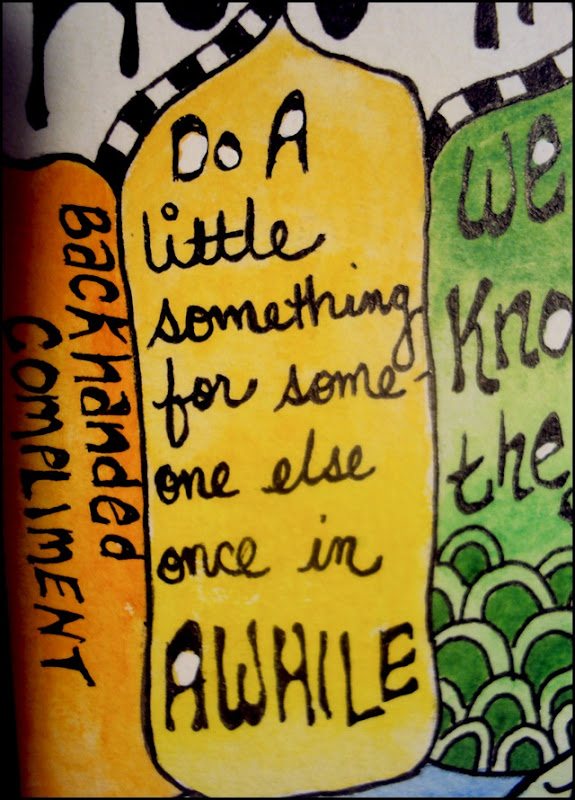 BACKHANDED
COMPLIMENT
Do A
little
something
for some-
one else
once in
AWHILE
we
the